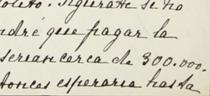 Figúrate se ha
dré que pagar la
serian cerca de 300.000.
tonces esperaria hasta